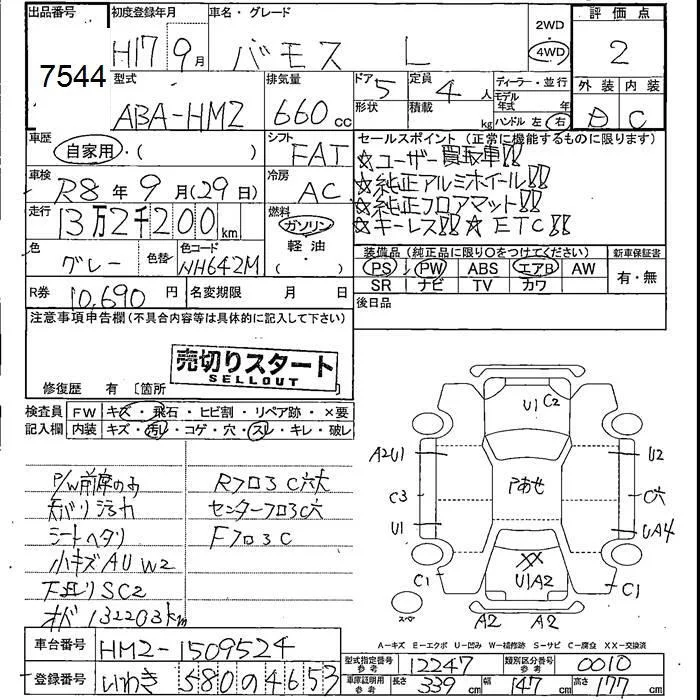 出品番号
7544
初度登録年月
H17 9月
車名・グレード
バモス L
2WD
4WD
評価点
2
外装 内装
D C
型式
ABA-HM2
排気量
660 cc
ドア 5
形状
定員 4 人
積載 kg
ディーラー・並行
モデル年式 年
ハンドル 左 右
車歴
自家用・( )
シフト
FAT
セールスポイント(正常に機能するものに限ります)
☆ユーザー買取車!!
☆純正アルミホイール!!
☆純正フロアマット!!
☆キーレス!! ☆ETC!!
車検
R8年9月(29日)
冷房
AC
走行
13万2千200km
燃料
ガソリン
軽油
( )
色
グレー
色替
色コード
NH642M
装備品(純正品に限り○をつけてください)
PS PW ABS エアB AW
SR ナビ TV カワ
新車保証書
有・無
R券 10,690 円
名変期限 月 日
後日品
注意事項申告欄(不具合内容等は具体的に記入して下さい)
売切りスタート
SELLOUT
修復歴 有 〔箇所 〕
検査員 FW キズ・飛石・ヒビ割・リペア跡・×要
記入欄 内装 キズ・汚レ・コゲ・穴・スレ・キレ・破レ
P/W前席のみ
Rフロア C穴大
センターフロア C穴
シートヘタリ
Fフロア C
小キズ AU W2
下廻り SC2
オド 132203km
U1 C2
A2U1
U2
C3
アあせ
C穴
U1
UA4
XX
U1A2
C1
C1
スペア
A2 A2
A-キズ E-エクボ U-凹み W-補修跡 S-サビ C-腐食 XX-交換済
車台番号 HM2-1509524
登録番号 いわき 580 の 4653
型式指定番号 参考 12247
類別区分番号 参考 0010
車庫証明用 参考 長さ 339 cm 幅 147 cm 高さ 177 cm